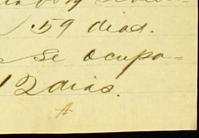 59 dias.
se ocupa-
12 dias.
A